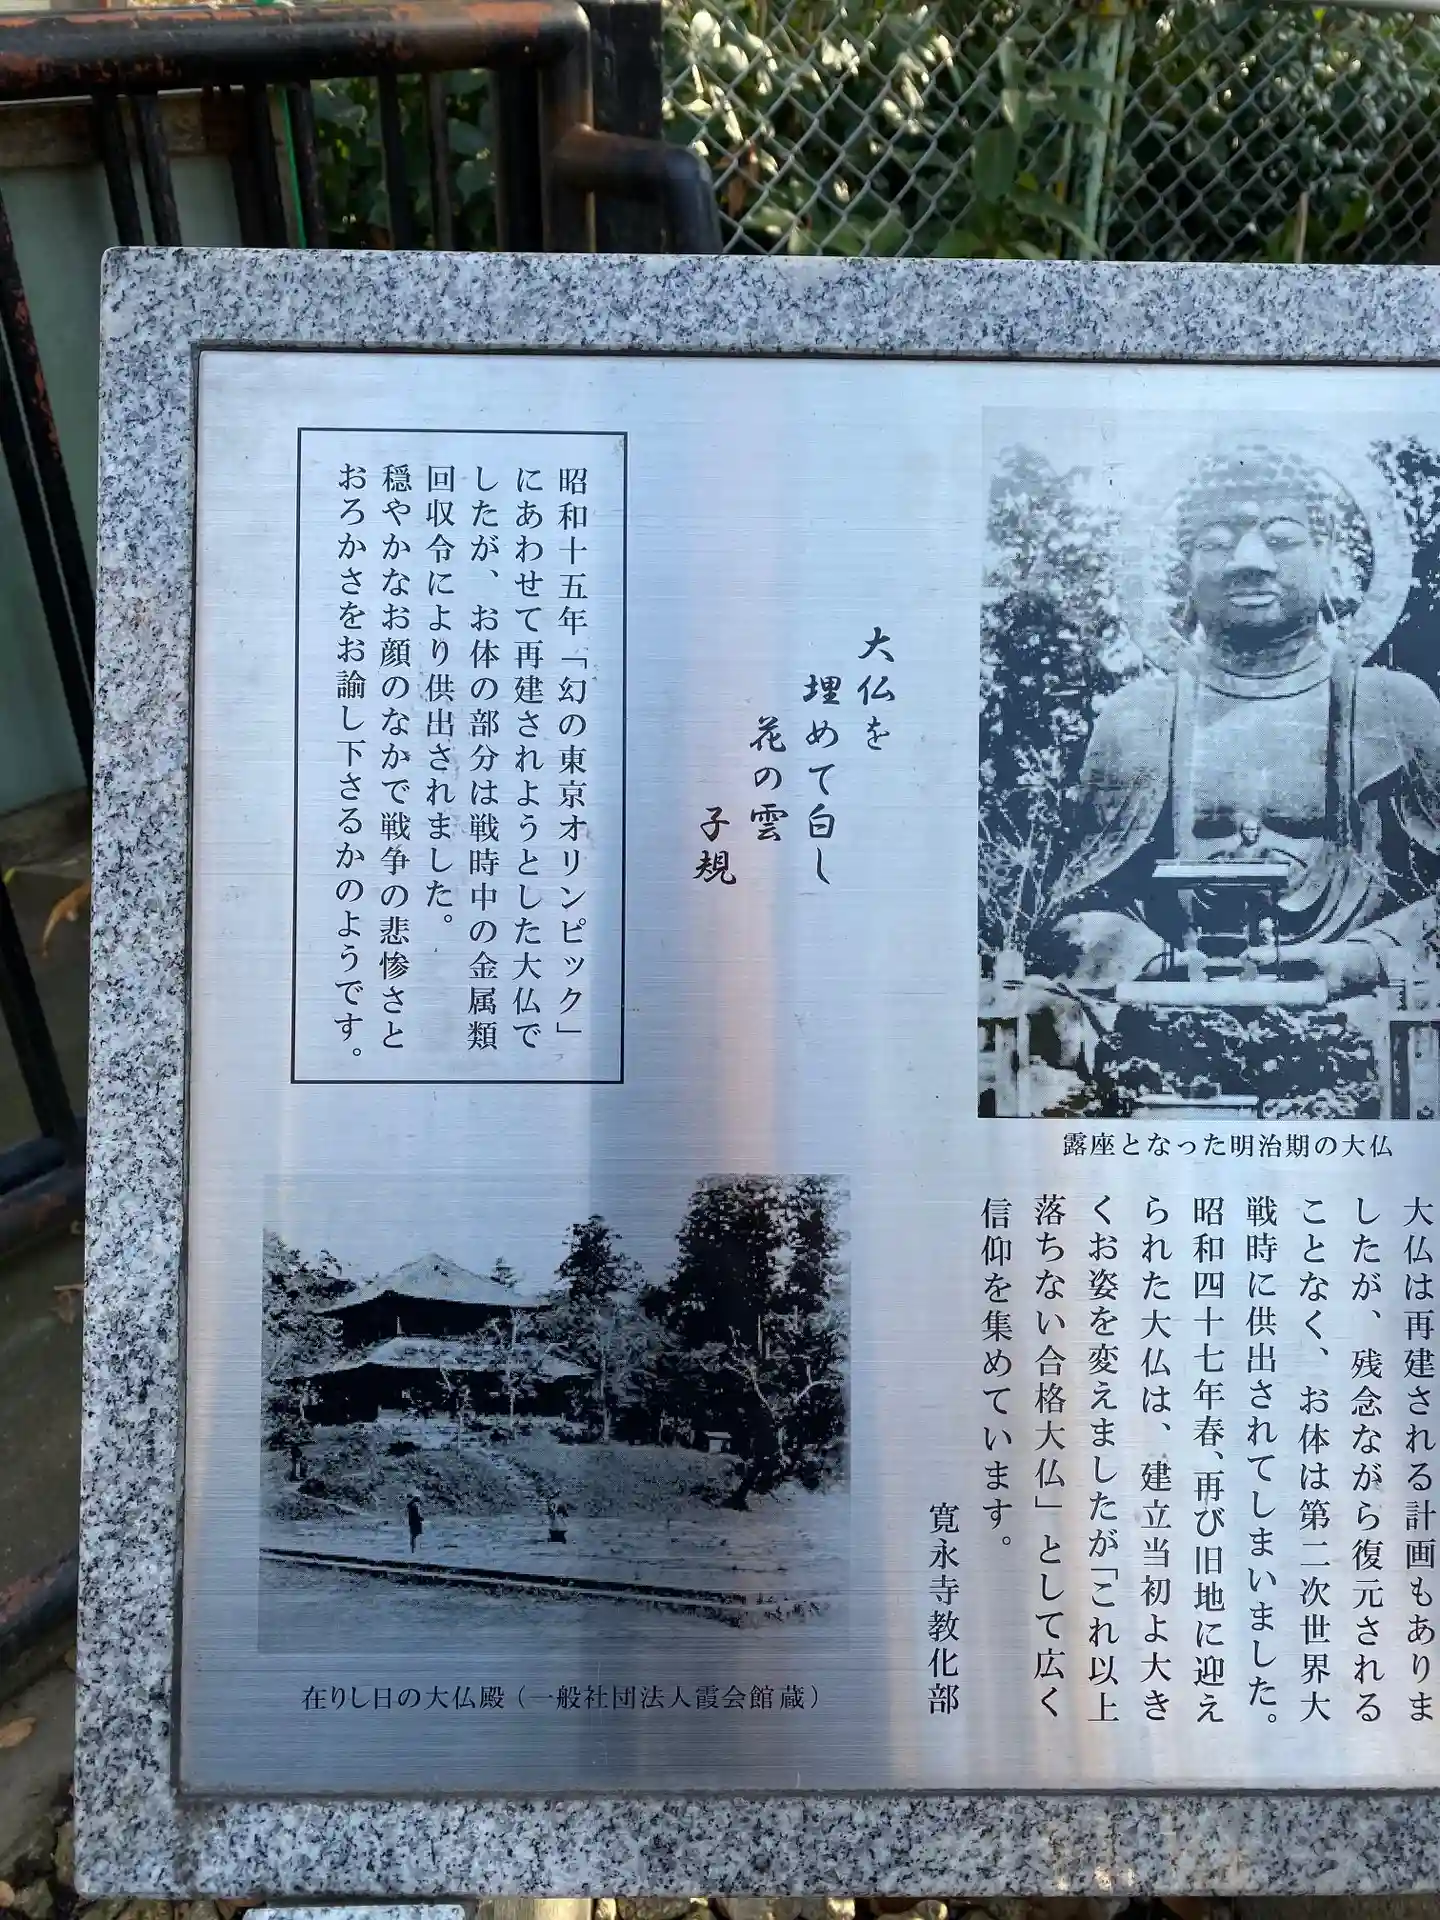 露座となった明治期の大仏
大仏は再建される計画もありま
したが、残念ながら復元される
ことなく、お体は第二次世界大
戦時に供出されてしまいました。
昭和四十七年春、再び旧地に迎え
られた大仏は、建立当初よ大き
くお姿を変えましたが「これ以上
落ちない合格大仏」として広く
信仰を集めています。
寛永寺教化部
大仏を
埋めて白し
花の雲
子規
昭和十五年「幻の東京オリンピック」
にあわせて再建されようとした大仏で
したが、お体の部分は戦時中の金属類
回収令により供出されました。
穏やかなお顔のなかで戦争の悲惨さと
おろかさをお諭し下さるかのようです。
在りし日の大仏殿（一般社団法人霞会館 蔵）